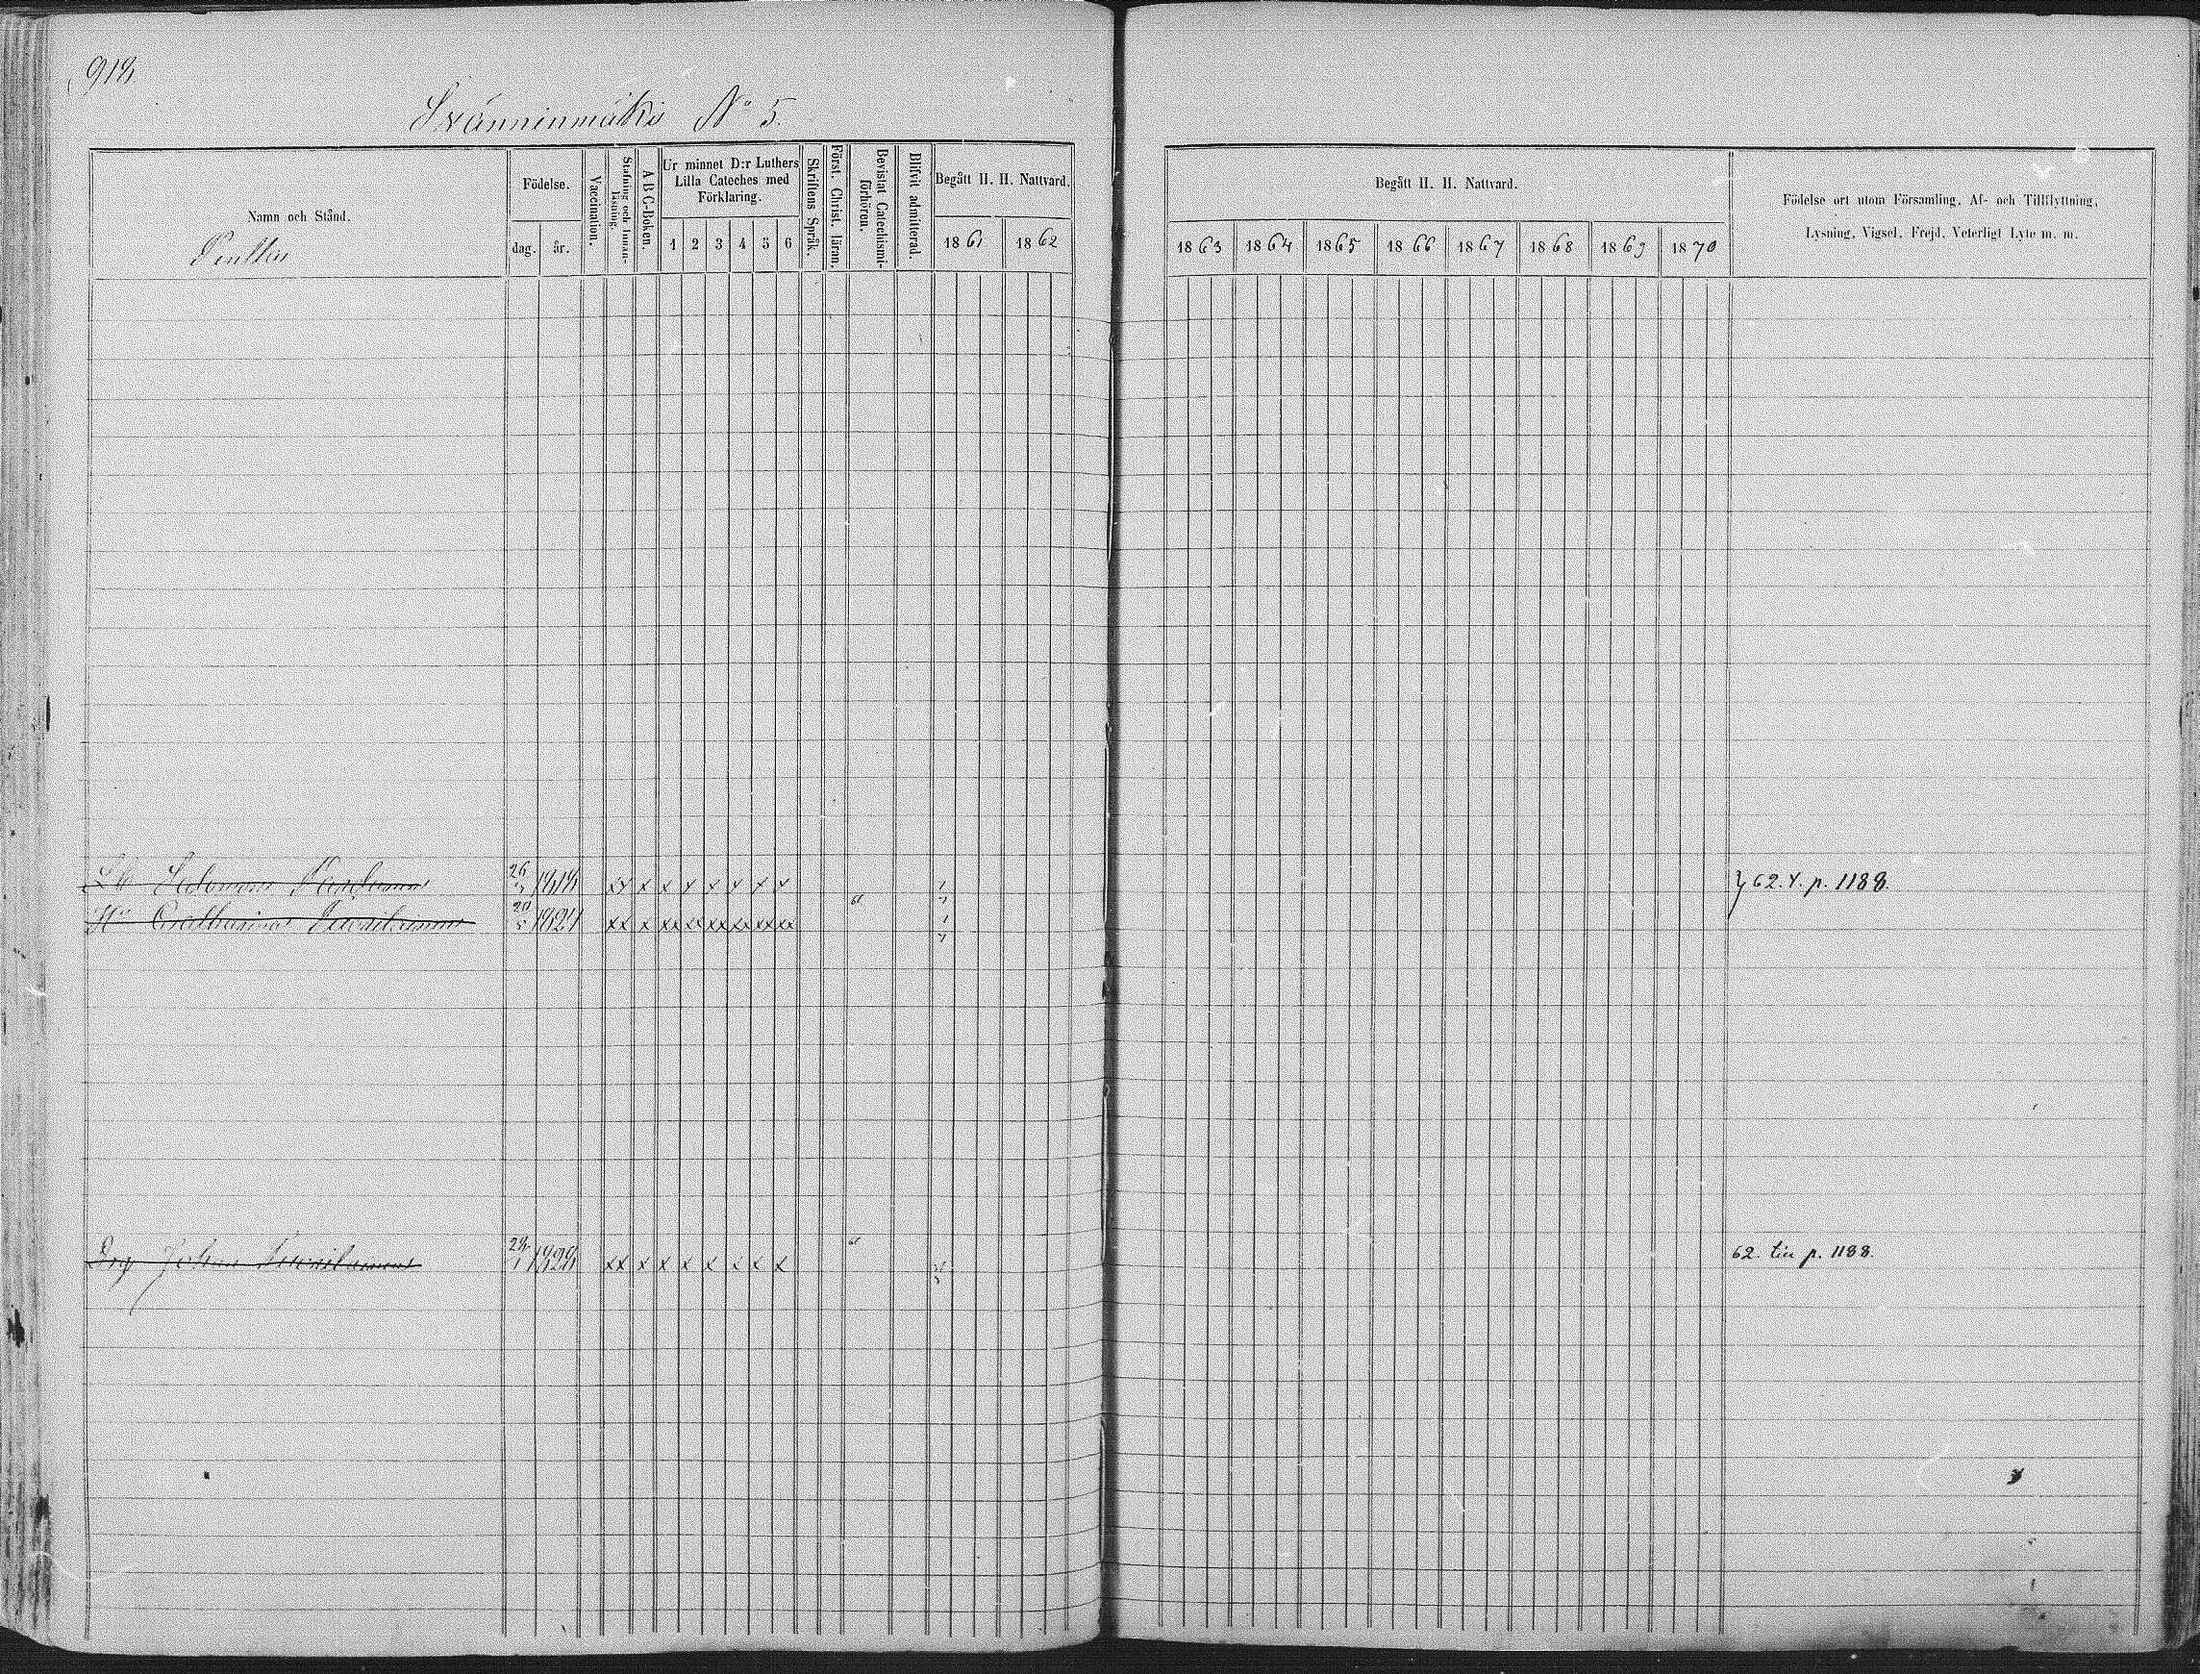 918.
Svänninmäki No 5.
Namn och Stånd.
Födelse.
dag. år.
Vaccination.
Stafning och Innan-läsning.
A B C-Boken.
Ur minnet D:r Luthers
Lilla Cateches med
Förklaring.
1 2 3 4 5 6
Skriftens Språk.
Först. Christ. läran.
Bevistat Catechismi-förhören.
Blifvit admitterad.
Begått H. H. Nattvard.
1861 1862
Begått H. H. Nattvard.
1863 1864 1865 1866 1867 1868 1869 1870
Födelse ort utom Församling, Af- och Tillflyttning,
Lysning, Vigsel, Frejd, Veterligt Lyte m. m.
Salomon 26 1818 xx x x x x x x x } 62. Y. p. 1188.
Hu Catharina 20/5 1824 xx x xx xx xx xx xx xx 61
Drg Johan 1828 xx x x x x x x x 61 62. tu p. 1188.